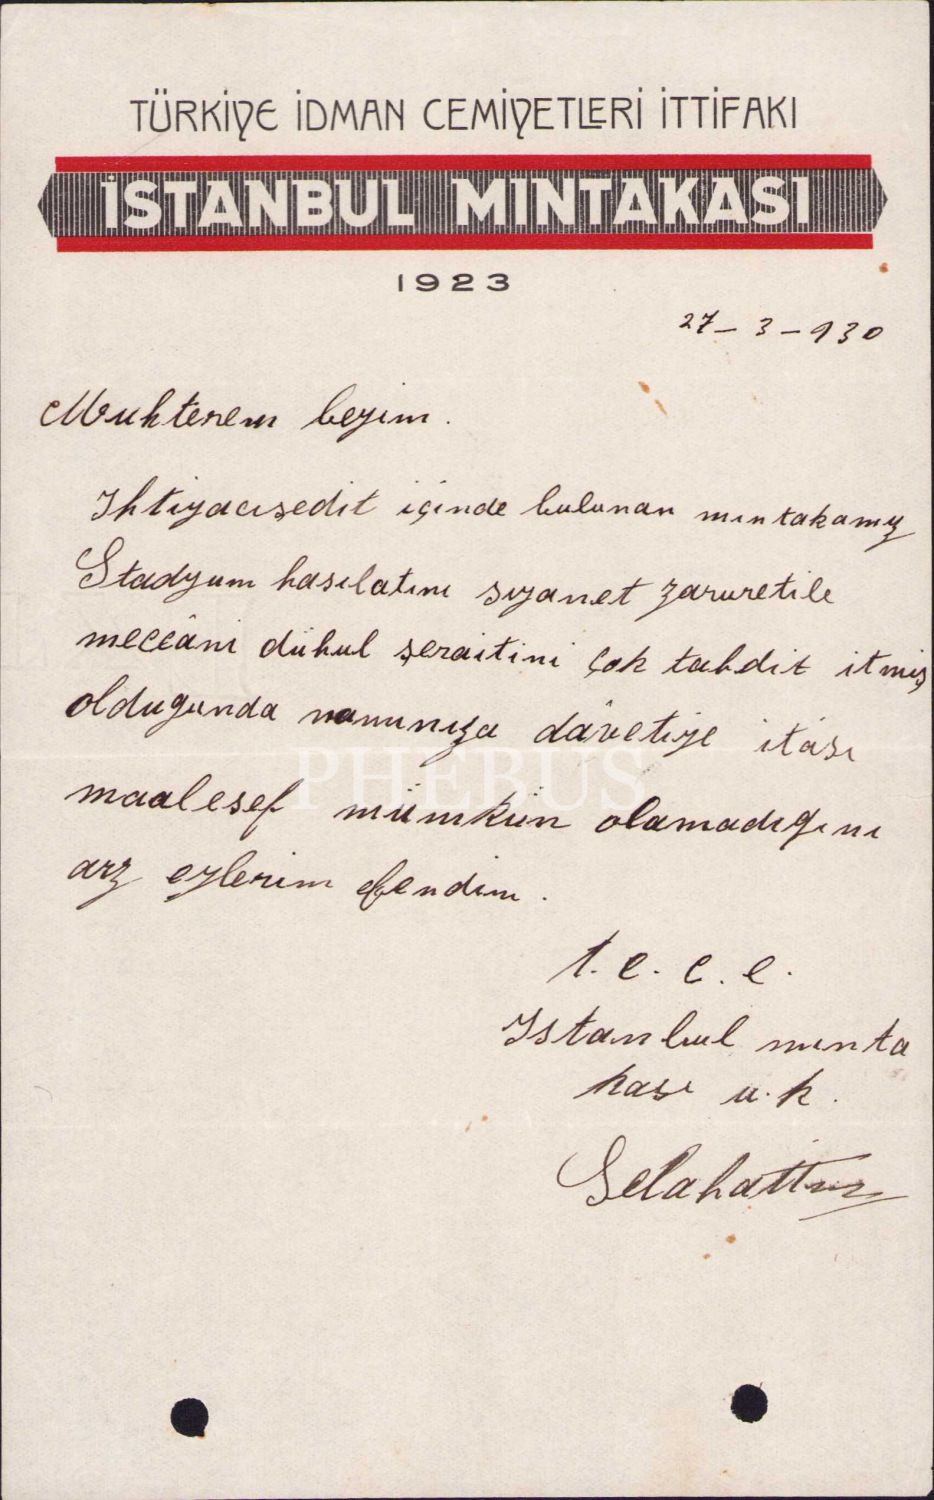 TÜRKİYE İDMAN CEMİYETLERİ İTTİFAKI
İSTANBUL MINTAKASI
1923
27-3-930
Muhterem beyim.
Ihtiyacışedit içinde bulunan mıntakamız
Stadyum hasılatını sıyanet zaruretile
meccâni dühul şeraitini çok tahdit itmiş
olduğunda namınıza dâvetiye itâsı
PHEBUS
maalesef mümkün olamadığını
arz eylerim efendim.
t. e. c. e.
Istanbul mınta
kası u. k.
Selahattin